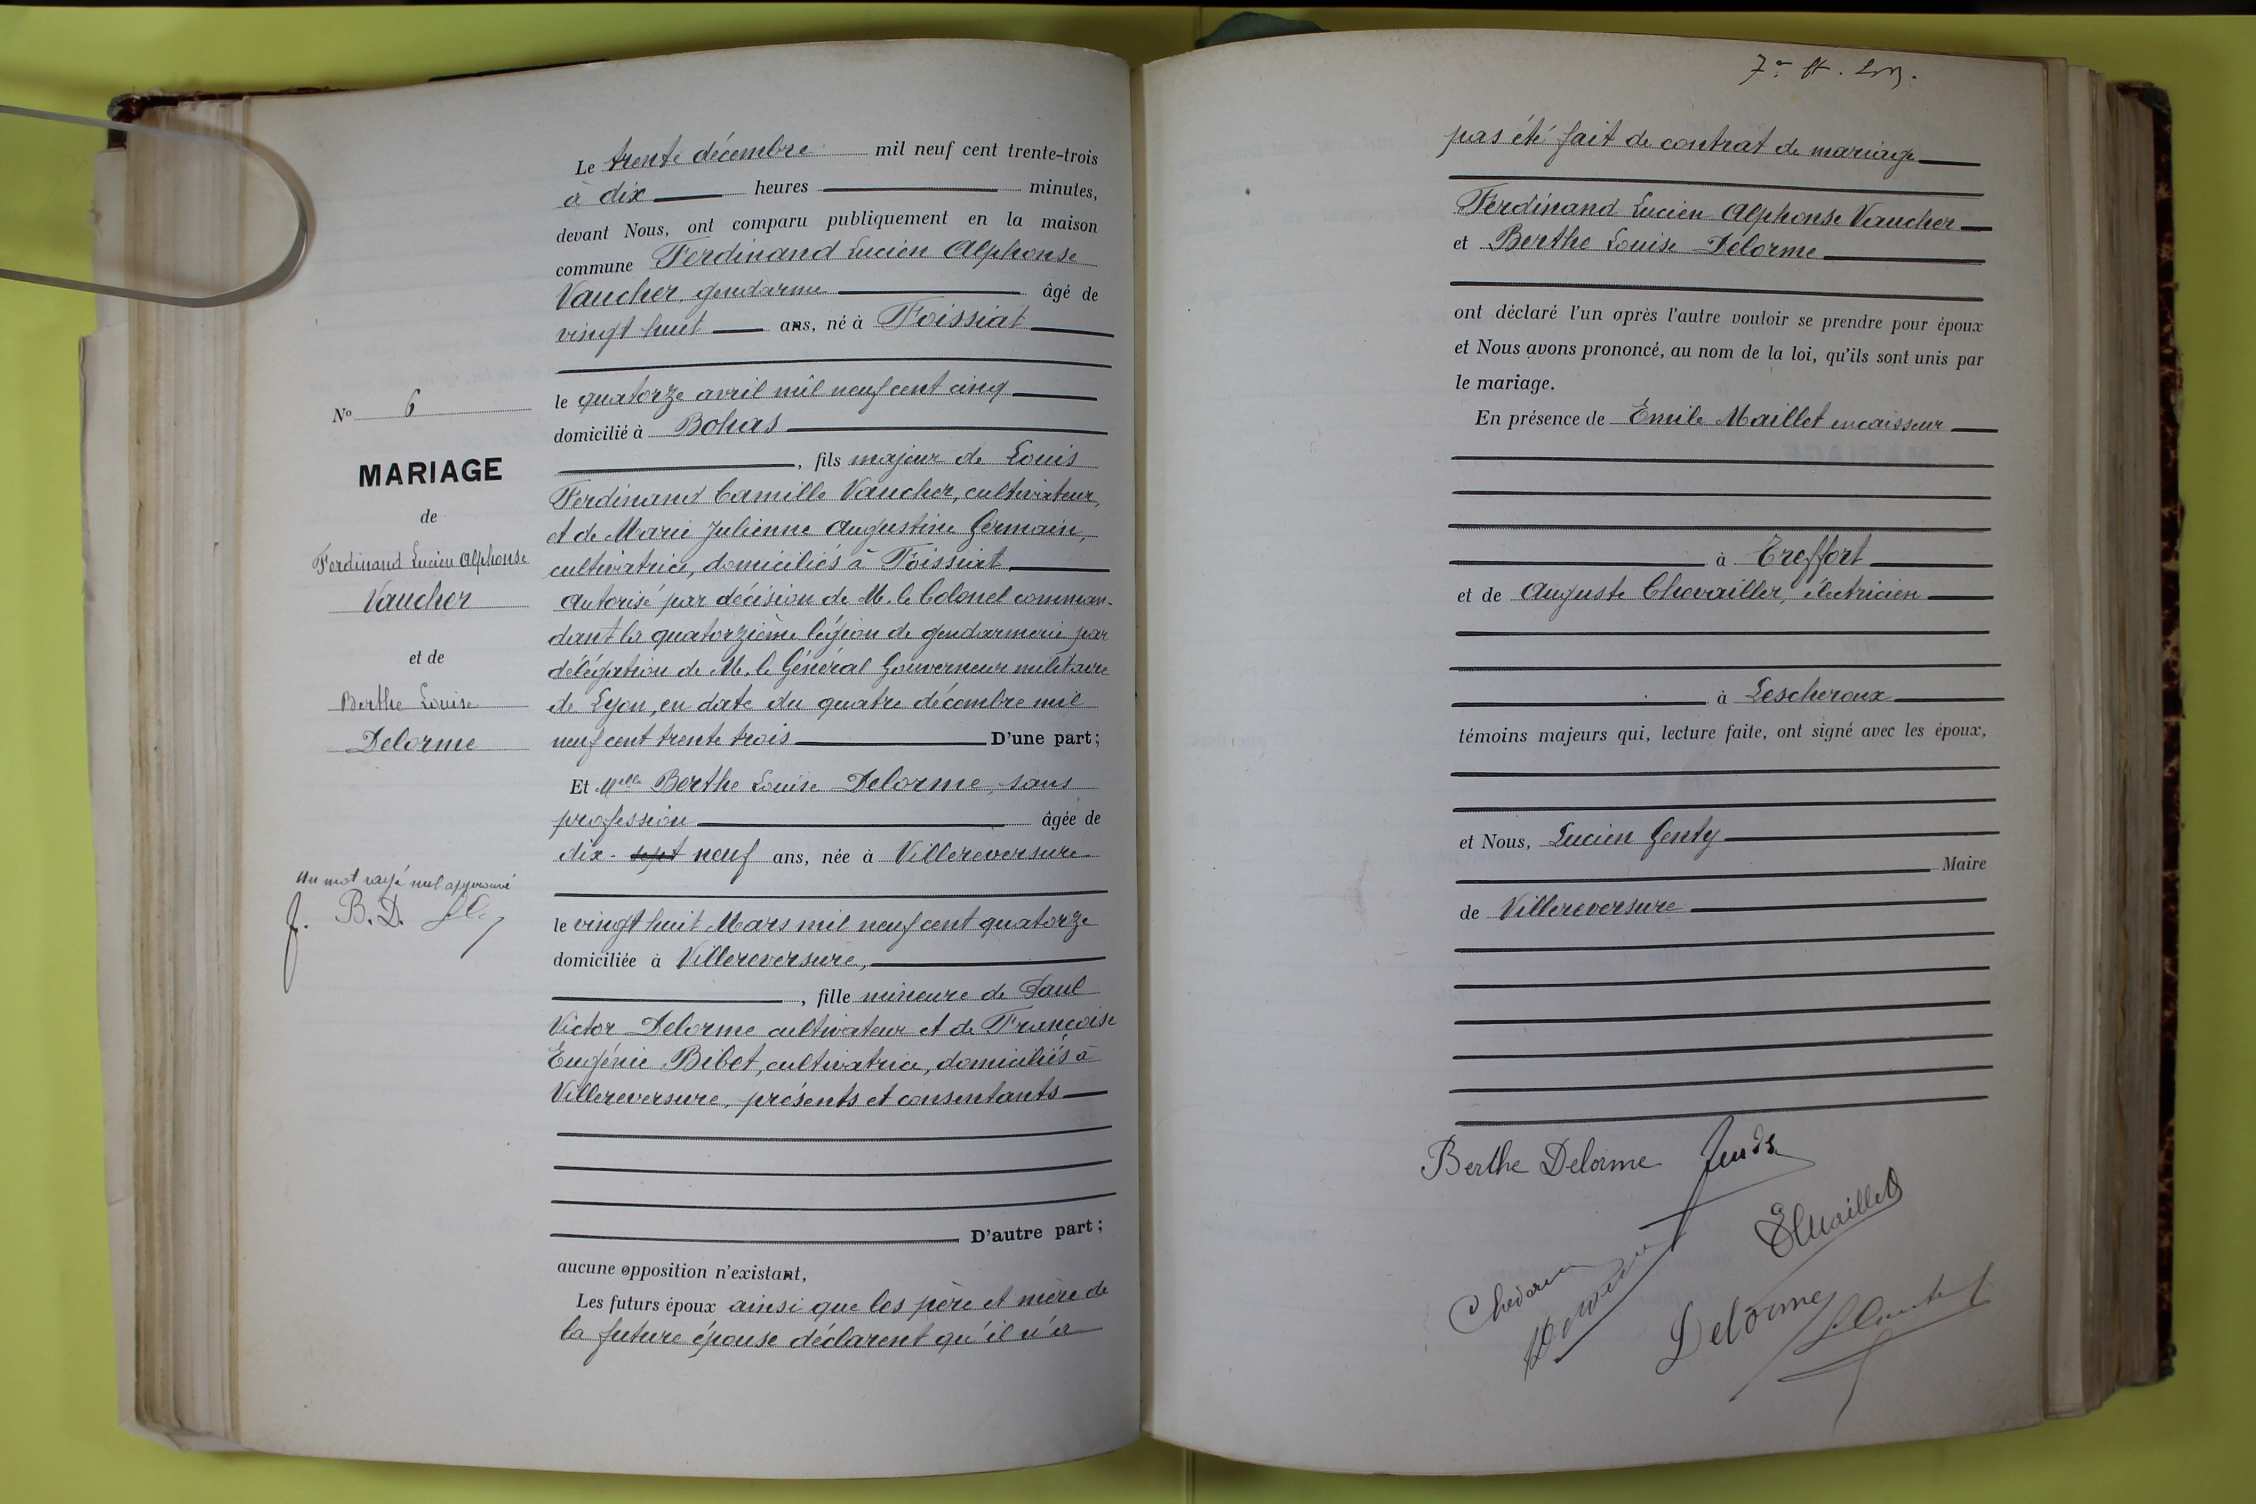 Le trente décembre mil neuf cent trente-trois
à dix heures minutes,
devant Nous, ont comparu publiquement en la maison
commune Ferdinand Lucien Alphonse
Vaucher, gendarme âgé de
vingt huit ans, né à Foissiat
le quatorze avril mil neuf cent cinq
domicilié à Bohas
, fils majeur de Louis
Ferdinand Camille Vaucher, cultivateur,
et de Marie Julienne Augustine Germain,
cultivatrice, domiciliés à Foissiat
Autorisé par décision de M. le Colonel comman-
dant la quatorzième légion de gendarmerie par
délégation de M. le Général Gouverneur militaire
de Lyon, en date du quatre décembre mil
neuf cent trente trois D'une part;
Et Melle Berthe Louise Delorme, sans
profession âgée de
dix-sept neuf ans, née à Villereversure
le vingt huit Mars mil neuf cent quatorze
domiciliée à Villereversure,
, fille mineure de Paul
Victor Delorme cultivateur et de Françoise
Eugénie Bibet, cultivatrice, domiciliés à
Villereversure, présents et consentants
D'autre part;
aucune opposition n'existant,
Les futurs époux ainsi que les père et mère de
la future épouse déclarent qu'il n'a
No 6
MARIAGE
de
Ferdinand Lucien Alphonse
Vaucher
et de
Berthe Louise
Delorme
Un mot rayé nul approuvé
J. B.D.
pas été fait de contrat de mariage
Ferdinand Lucien Alphonse Vaucher
et Berthe Louise Delorme
ont déclaré l'un après l'autre vouloir se prendre pour époux
et Nous avons prononcé, au nom de la loi, qu'ils sont unis par
le mariage.
En présence de Emile Maillet encaisseur
à Treffort
et de Auguste Chevailler, électricien
à Lescheroux
témoins majeurs qui, lecture faite, ont signé avec les époux,
et Nous, Lucien Genty
Maire
de Villereversure
Berthe Delorme
EMaillet
Delorme